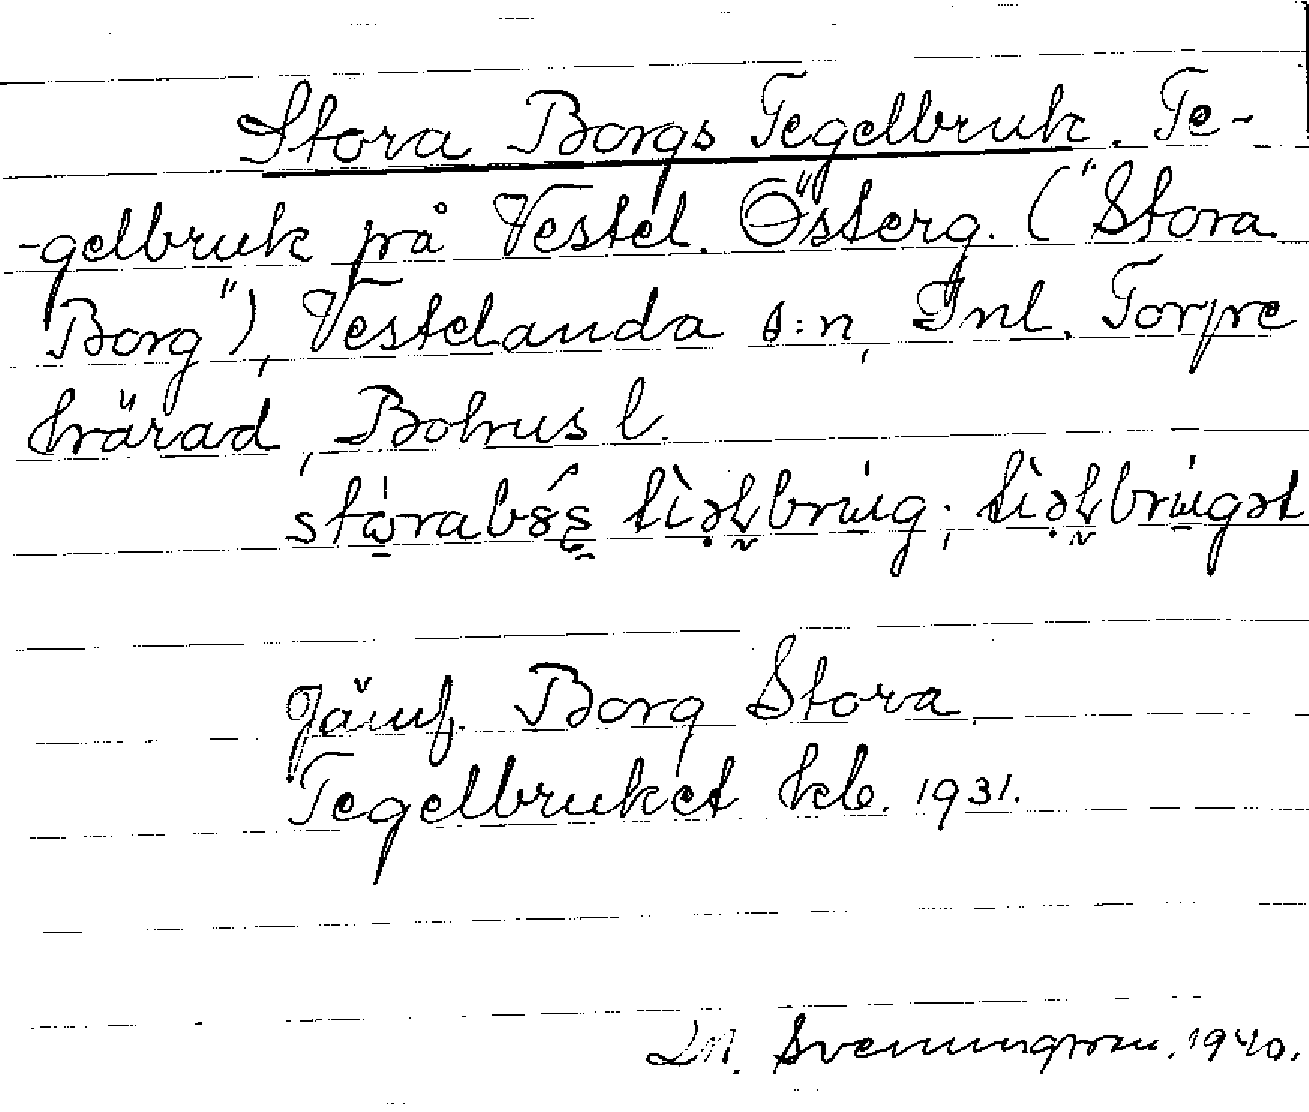 Stora Borgs Tegelbruk. Te-
-gelbruk på Vestel. Österg. ("Stora
Borg"), Vesterlanda s:n, Inl. Torpe
härad, Bohus l.
Jämf. Borg Stora.
Tegelbruket hkb. 1931.
Svenungsson. 1940.